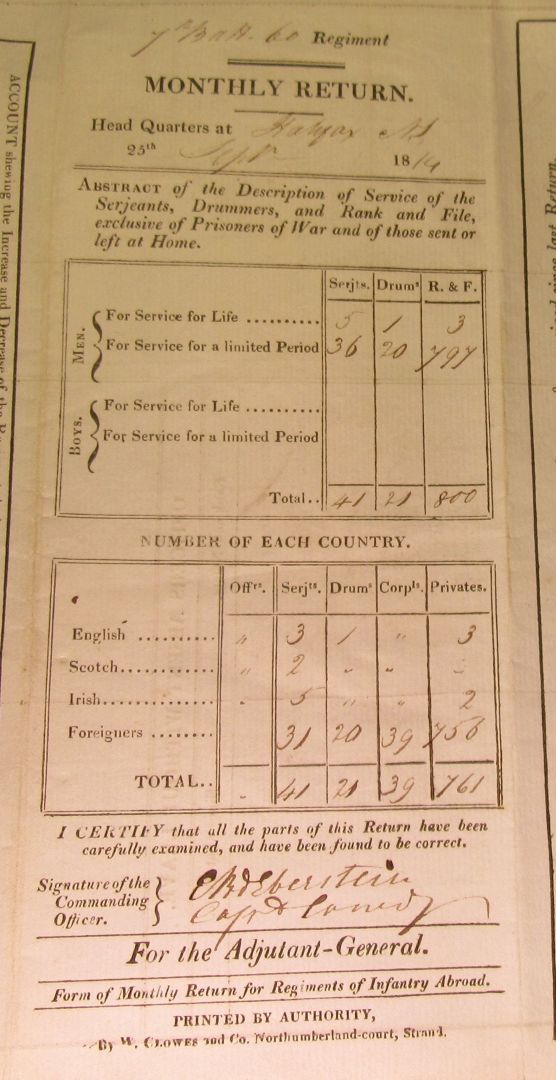 7th Batt. 60 Regiment
MONTHLY RETURN.
Head Quarters at Halifax NS
25th Sept 1814
ABSTRACT of the Description of Service of the
Serjeants, Drummers, and Rank and File,
exclusive of Prisoners of War and of those sent or
left at Home.
Serjts. Drums R. & F.
MEN.
For Service for Life .......... 5 1 3
For Service for a limited Period 36 20 797
BOYS.
For Service for Life ..........
For Service for a limited Period
Total.. 41 21 800
NUMBER OF EACH COUNTRY.
Offrs. Serjts. Drums Corpls. Privates.
English ........... " 3 1 " 3
Scotch............. " 2 " " "
Irish............... " 5 " " 2
Foreigners ......... 31 20 39 756
TOTAL.. " 41 21 39 761
I CERTIFY that all the parts of this Return have been
carefully examined, and have been found to be correct.
Signature of the
Commanding
Officer.
Eberstein
Capt
For the Adjutant-General.
Form of Monthly Return for Regiments of Infantry Abroad.
PRINTED BY AUTHORITY,
By W. CLOWES and Co. Northumberland-court, Strand.
ACCOUNT shewing the Increase and Decrease of the
since last Return.